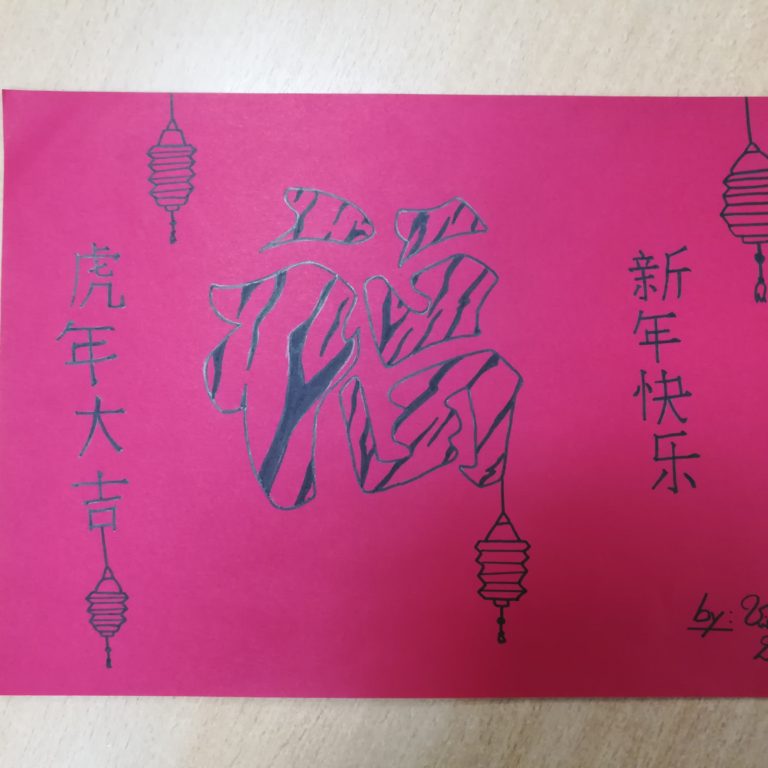 虎年大吉
福
新年快乐
by: